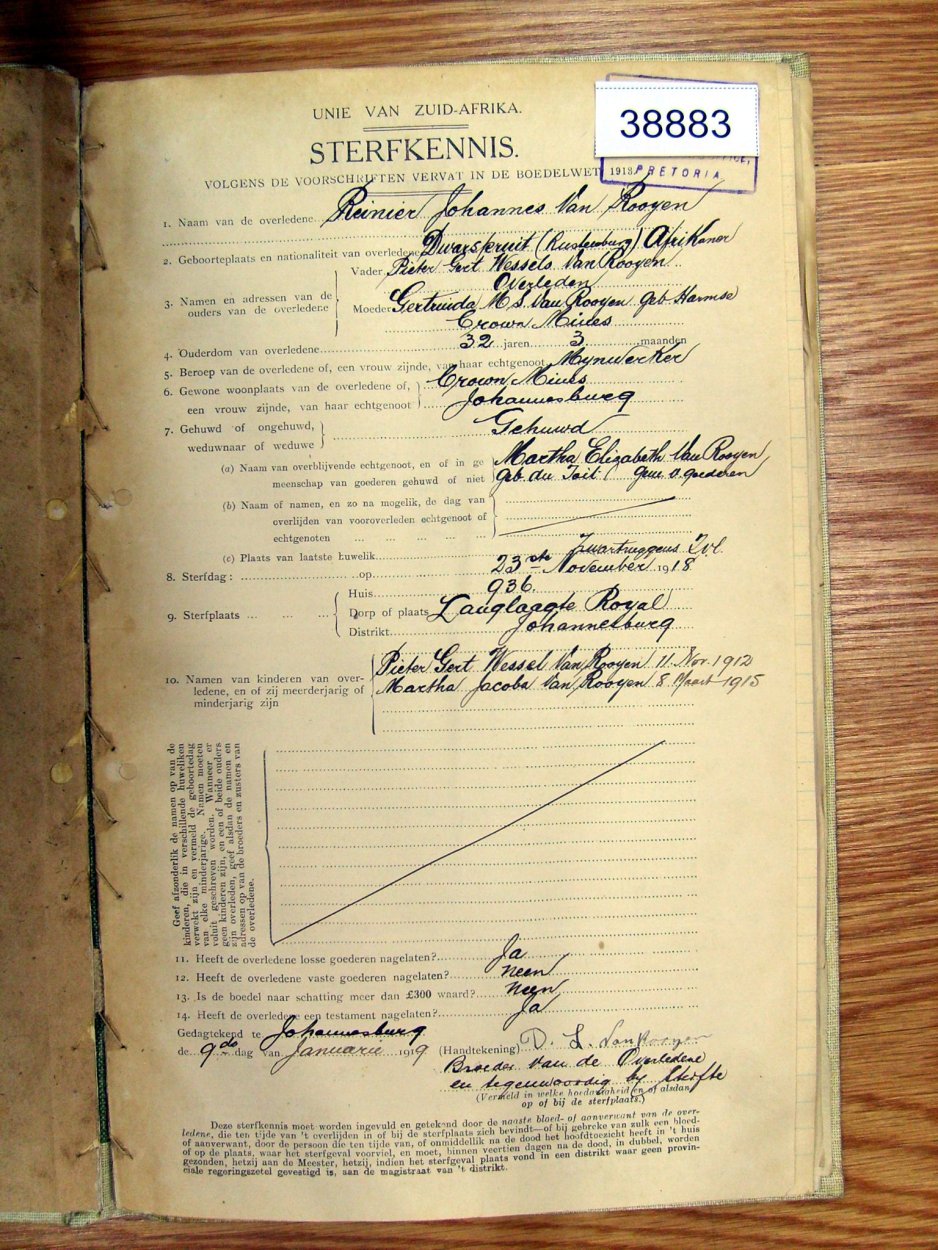 UNIE VAN ZUID-AFRIKA.
38883
STERFKENNIS.
VOLGENS DE VOORSCHRIFTEN VERVAT IN DE BOEDELWET 1913.
PRETORIA
1. Naam van de overledene Reinier Johannes Van Rooyen
2. Geboorteplaats en nationaliteit van overledene Dwarsspruit (Rustenburg) Afrikaner
3. Namen en adressen van de ouders van de overledene
Vader Pieter Gert Wessels Van Rooyen
Overleden
Moeder Gertruida M S. Van Rooyen geb Harmse
Crown Mines
4. Ouderdom van overledene 32 jaren 3 maanden
5. Beroep van de overledene of, een vrouw zijnde, van haar echtgenoot Mynwerker
6. Gewone woonplaats van de overledene of, Crown Mines
een vrouw zijnde, van haar echtgenoot Johannesburg
7. Gehuwd of ongehuwd, weduwnaar of weduwe Gehuwd
(a) Naam van overblijvende echtgenoot, en of in ge Martha Elizabeth Van Rooyen
meenschap van goederen gehuwd of niet geb du Toit / gem. v. goederen
(b) Naam of namen, en zo na mogelik, de dag van
overlijden van vooroverleden echtgenoot of
echtgenoten
(c) Plaats van laatste huwelik Zwartruggens Tvl
8. Sterfdag: op 23ste November 1918
9. Sterfplaats
Huis 936.
Dorp of plaats Langlaagte Royal
Distrikt Johannesburg
10. Namen van kinderen van over- Pieter Gert Wessel Van Rooyen 11. Nov. 1912
ledene, en of zij meerderjarig of Martha Jacoba Van Rooyen 8 Maart 1915
minderjarig zijn
Geef afzonderlik de namen op van de
kinderen, die in verschillende huweliken
verwekt zijn en vermeld de geboortedag
van elke minderjarige. Namen moeten
voluit geschreven worden. Wanneer er
geen kinderen zijn, en een of beide ouders
zijn overleden, geef alsdan de namen en
adressen op van de broeders en zusters van
de overledene.
11. Heeft de overledene losse goederen nagelaten? Ja
12. Heeft de overledene vaste goederen nagelaten? Neen
13. Is de boedel naar schatting meer dan £300 waard? Neen
14. Heeft de overledene een testament nagelaten? Ja
Gedagtekend te Johannesburg
de 9de dag van Januarie 1919 (Handtekening) D. L. Van Rooyen
Broeder van de Overledene
en tegenwoordig by Sterfte
(Vermeld in welke hoedanigheid en of alsdan
op of bij de sterfplaats.)
Deze sterfkennis moet worden ingevuld en getekend door de naaste bloed- of aanverwant van de over-
ledene, die ten tijde van 't overlijden in of bij de sterfplaats zich bevindt—of bij gebreke van zulk een bloed-
of aanverwant, door de persoon die ten tijde van, of onmiddellik na de dood het hoofdtoezicht heeft in 't huis
of op de plaats, waar het sterfgeval voorviel, en moet, binnen veertien dagen na de dood, in dubbel, worden
gezonden, hetzij aan de Meester, hetzij, indien het sterfgeval plaats vond in een distrikt waar geen provin-
ciale regeringszetel gevestigd is, aan de magistraat van 't distrikt.